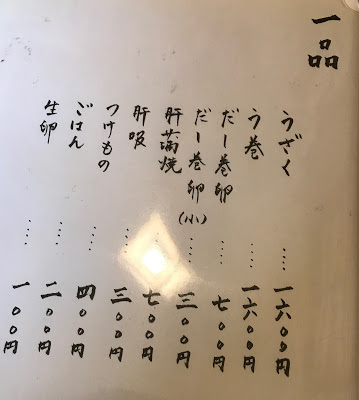 一品
うざく ‥‥ 一六〇〇円
う巻 ‥‥ 一六〇〇円
だし巻卵 ‥‥ 七〇〇円
だし巻卵(小) ‥‥ 三〇〇円
肝蒲焼 ‥‥ 七〇〇円
肝吸 ‥‥ 三〇〇円
つけもの ‥‥ 四〇〇円
ごはん ‥‥ 二〇〇円
生卵 ‥‥ 一〇〇円